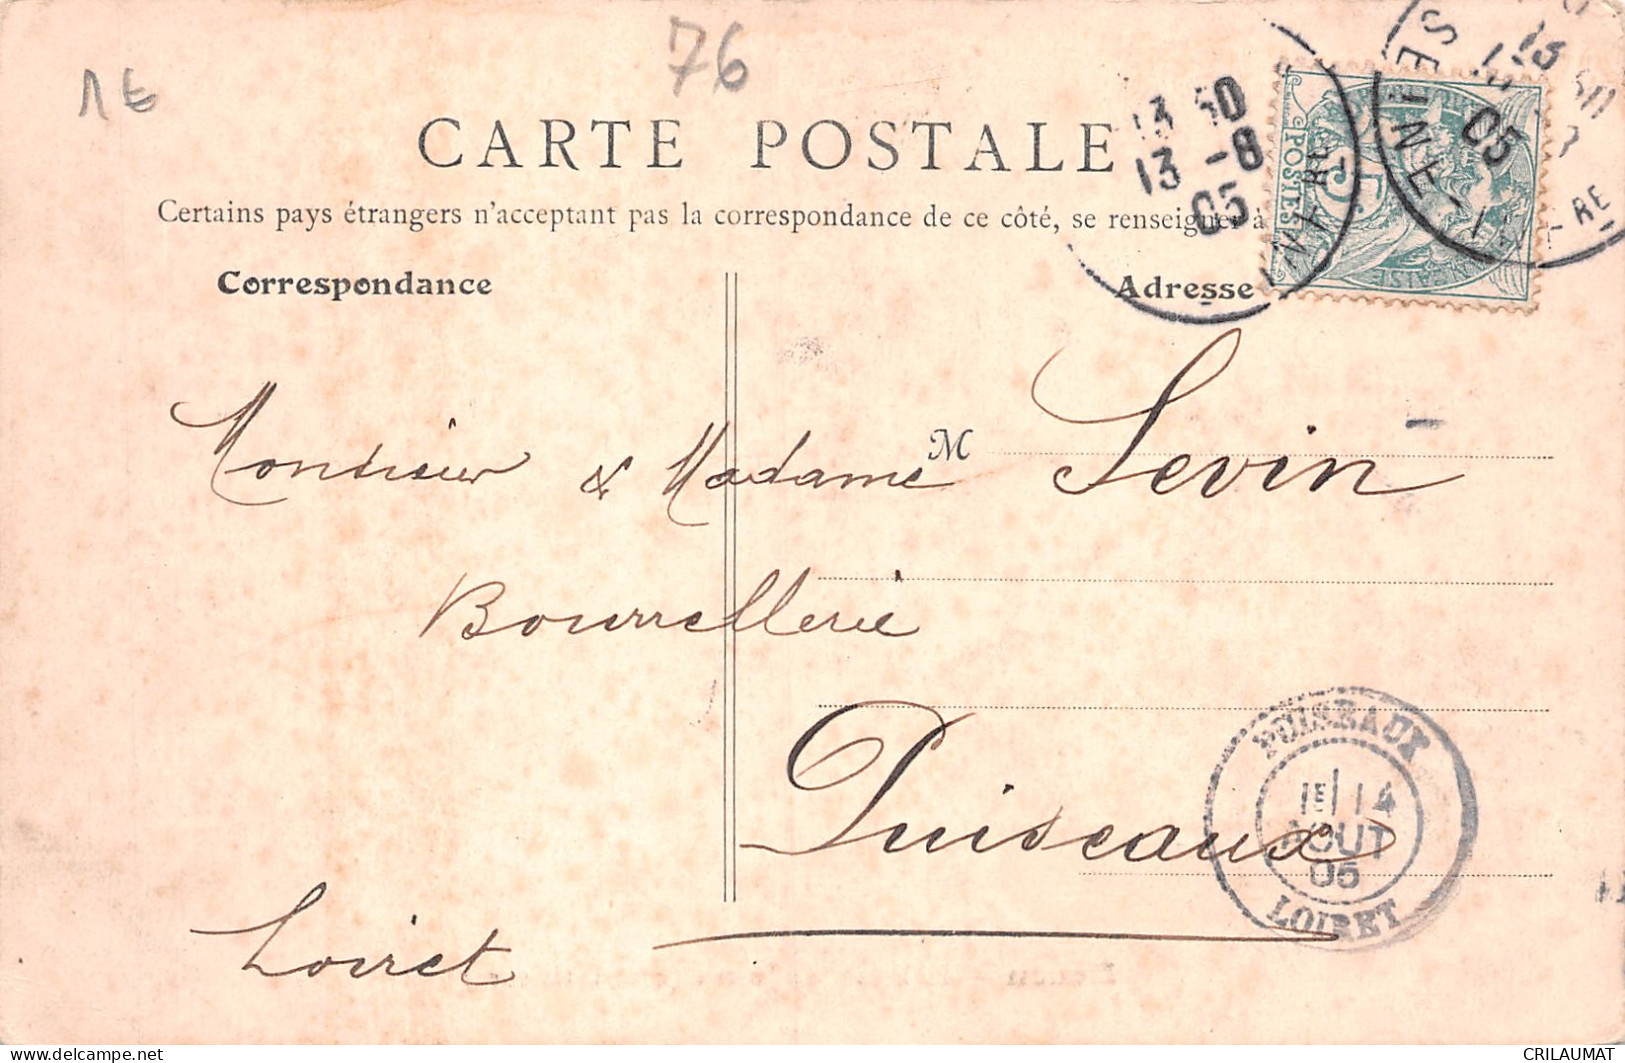 1€
76
CARTE POSTALE
Certains pays étrangers n'acceptant pas la correspondance de ce côté, se renseigner à
Correspondance
Adresse
13 50
13 -8
05
INFRE
POSTES
5
SEINE-INFRE
05
Monsieur & Madame M Sevin
Bourrellerie
Puiseaux
Loiret
PUISEAUX
1E 14
AOUT
05
LOIRET
CRILAUMAT